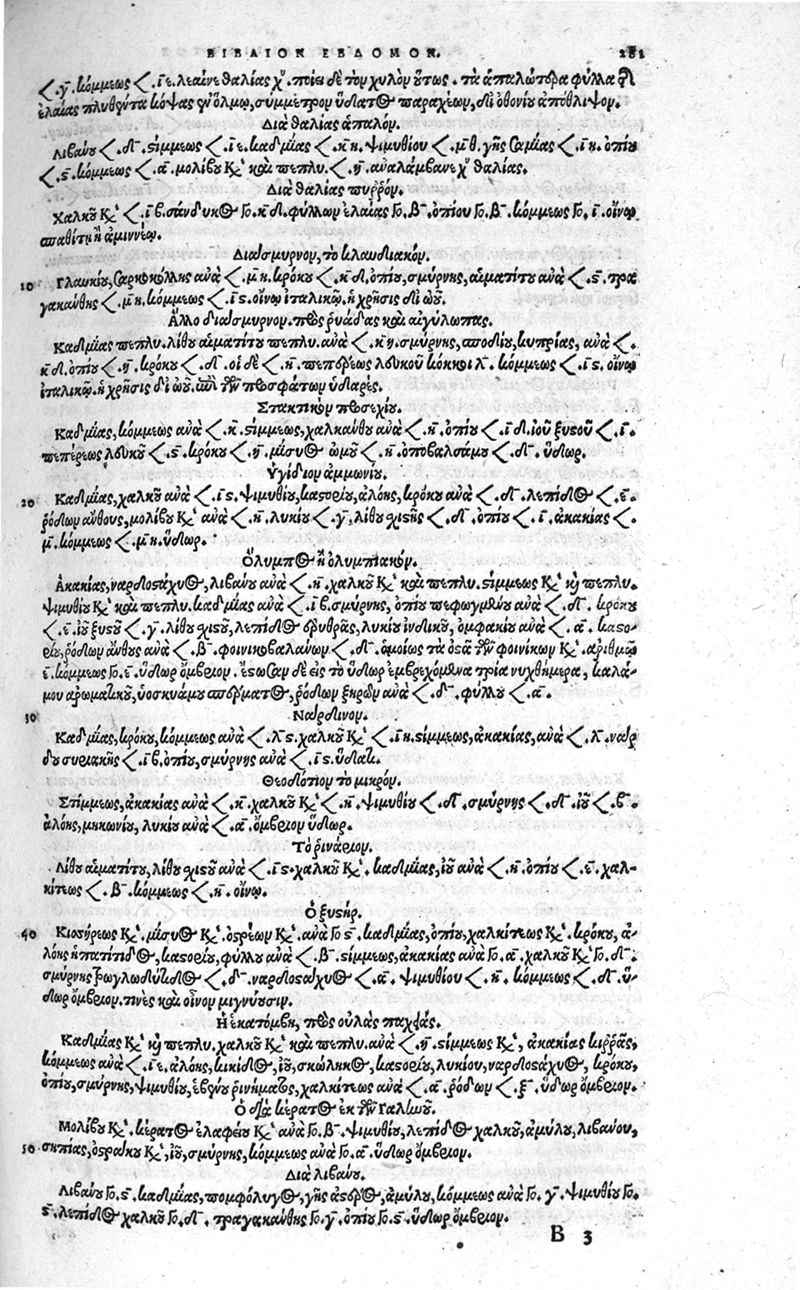 ΒΙΒΛΙΟΝ ΕΒΔΟΜΟΝ. 281
<. γ̄. κόμμεως <. ῑε. λείαινε θαλίας χ̊. ποίει δὲ τὸν χυλὸν οὕτως. τὰ ἁπαλώτερα φύλλα τῆς
ἐλαίας πλυθέντα κόψας ἐν ὅλμῳ, σύμμετρον ὕδατος παραχέων, δι' ὀθονίου ἀπόθλιψον.
Διὰ θαλίας ἁπαλόν.
Λιβάνου <. δ̄. στίμμεως <. ῑε. καδμίας <. κ̄η. ψιμυθίου <. μ̄θ. γῆς σαμίας <. ῑη. ὀπίου
<. ς̄. κόμμεως <. ᾱ. μολίβου κκ̀ καὶ πεπλυ. <. η̄. ἀναλάμβανε χ̊ θαλίας.
Διὰ θαλίας πυρρόν.
Χαλκοῦ κκ̀ <. ῑβ. σάνδυκος Γο. κ̄δ. φύλλων ἐλαίας Γο. β̄. ὀπίου Γο. β̄. κόμμεως Γο. ῑ. οἴνῳ
σπαθίτῃ ἢ ἀμιννέῳ.
Διάσμυρνον, τὸ κλαυδιακόν.
10 Γλαυκίου, σαρκοκόλλης ἀνὰ <. μ̄η. κρόκου <. κ̄δ. ὀπίου, σμύρνης, αἱματίτου ἀνὰ <. ς̄. τρα
γακάνθης <. μ̄η. κόμμεως <. ῑς. οἴνῳ ἰταλικῷ. ἡ χρῆσις δι' ὠοῦ.
Ἄλλο διάσμυρνον. πρὸς ῥυάδας καὶ αἰγίλωπας.
Καδμίας πεπλυ. λίθου αἱματίτου πεπλυ. ἀνὰ <. κ̄η. σμύρνης, σποδίου, κυπρίας, ἀνὰ <.
κ̄δ. ὀπίου <. η̄. κρόκου <. δ̄. οἱ δὲ <. η̄. πεπέρεως λευκοῦ κόκκοι λ̄. κόμμεως <. ῑς. οἴνῳ
ἰταλικῷ. ἡ χρῆσις δι' ὠοῦ. ἐπὶ τῶν προσφάτων ὑδαρές.
Στακτικὸν προσεχίου.
Καδμίας, κόμμεως ἀνὰ <. κ̄. στίμμεως, χαλκάνθου ἀνὰ <. η̄. ὀπίου <. ῑδ. ἰοῦ ξυστοῦ <. ῑ.
πεπέρεως λευκοῦ <. ς̄. κρόκου <. η̄. μίσυος ὠμοῦ <. η̄. ὀποβαλσάμου <. δ̄. ὕδωρ.
Ὑγίδιον ἀμμωνίου.
20 Καδμίας, χαλκοῦ ἀνὰ <. ῑς. ψιμυθίου, καστορίου, ἀλόης, κρόκου ἀνὰ <. δ̄. λεπίδος <. ε̄.
ῥόδων ἄνθους, μολίβου κκ̀ ἀνὰ <. η̄. λυκίου <. γ̄. λίθου σχιστῆς <. δ̄. ὀπίου <. ῑ. ἀκακίας <.
μ̄. κόμμεως <. μ̄η. ὕδωρ.
Ὄλυμπος ἢ ὀλυμπιακόν.
Ἀκακίας, ναρδοστάχυος, λιβάνου ἀνὰ <. η̄. χαλκοῦ κκ̀ καὶ πεπλυ. στίμμεως κκ̀ καὶ πεπλυ.
ψιμυθίου κκ̀ καὶ πεπλυ. καδμίας ἀνὰ <. ῑβ. σμύρνης, ὀπίου πεφωγμένου ἀνὰ <. δ̄. κρόκου
<. ε̄. ἰοῦ ξυστοῦ <. γ̄. λίθου σχιστοῦ, λεπίδος ἐρυθρᾶς, λυκίου ἰνδικοῦ, ὀμφακίου ἀνὰ <. ᾱ. καστο-
ρίου, ῥόδων ἄνθους ἀνὰ <. β̄. φοινικοβαλάνων <. δ̄. ὁμοίως τὰ ὀστᾶ τῶν φοινίκων κκ̀ ἀριθμῷ
ε̄. κόμμεως Γο. ε̄. ὕδωρ ὄμβριον. ἔστωσαν δὲ εἰς τὸ ὕδωρ ἐμβρεχόμενα τρία νυχθήμερα, καλά-
μου ἀρωματικοῦ, ὑοσκυάμου σπέρματος, ῥόδων ξηρῶν ἀνὰ <. δ̄. φύλλου <. ᾱ.
30 Νάρδινον.
Καδμίας, κρόκου, κόμμεως ἀνὰ <. λ̄ς. χαλκοῦ κκ̀ <. ῑη. στίμμεως, ἀκακίας, ἀνὰ <. λ̄. νάρ
δου συριακῆς <. ῑβ. ὀπίου, σμύρνης ἀνὰ <. ῑς. ὕδατι.
Θεοδότιον τὸ μικρόν.
Στίμμεως, ἀκακίας ἀνὰ <. κ̄. χαλκοῦ κκ̀ <. η̄. ψιμυθίου <. δ̄. σμύρνης <. δ̄. ἰοῦ <. β̄.
ἀλόης, μηκωνίου, λυκίου ἀνὰ <. ᾱ. ὄμβριον ὕδωρ.
Τὸ ῥινάριον.
Λίθου αἱματίτου, λίθου σχιστοῦ ἀνὰ <. ῑς. χαλκοῦ κκ̀. καδμίας, ἰοῦ ἀνὰ <. η̄. ὀπίου <. ε̄. χαλ-
κίτεως <. β̄. κόμμεως <. η̄. οἴνῳ.
Ὁ ξυστήρ.
40 Κισσήρεως κκ̀. μίσυος κκ̀. ὀστρέων κκ̀. ἀνὰ Γο ς̄. καδμίας, ὀπίου, χαλκίτεως κκ̀. κρόκου, ἀ-
λόης ἡπατίτιδος, καστορίου, φύλλου ἀνὰ <. β̄. στίμμεως, ἀκακίας ἀνὰ Γο. ᾱ. χαλκοῦ κκ̀ Γο. δ̄.
σμύρνης τρωγλωδύτιδος <. δ̄. ναρδοστάχυος <. ᾱ. ψιμυθίου <. η̄. κόμμεως <. δ̄. ὕ-
δωρ ὄμβριον. τινὲς καὶ οἶνον μιγνύουσιν.
Ἡ ἑκατόμβη, πρὸς οὐλὰς παχείας.
Καδμίας κκ̀ καὶ πεπλυ. χαλκοῦ κκ̀ καὶ πεπλυ. ἀνὰ <. η̄. στίμμεως κκ̀, ἀκακίας κιρρᾶς,
κόμμεως ἀνὰ <. ῑε, ἀλόης, κικίδος, ἰοῦ, σκώληκος, καστορίου, λυκίου, ναρδοστάχυος, κρόκου,
ὀπίου, σμύρνης, ψιμυθίου, ἐβένου ῥινήματος, χαλκίτεως ἀνὰ <. ᾱ. ῥόδων <. ξ̄. ὕδωρ ὄμβριον.
Ὁ διὰ κέρατος ἐκ τῶν Γαληνοῦ.
Μολίβου κκ̀. κέρατος ἐλαφείου κκ̀ ἀνὰ Γο. β̄. ψιμυθίου, λεπίδος χαλκοῦ, ἀμύλου, λιβάνου,
50 σηπίας, ὀστράκου κκ̀, ἰοῦ, σμύρνης, κόμμεως ἀνὰ Γο. ᾱ. ὕδωρ ὄμβριον.
Διὰ λιβάνου.
Λιβάνου Γο. ς̄. καδμίας, πομφόλυγος, γῆς ἀστέρος, ἀμύλου, κόμμεως ἀνὰ Γο. γ̄. ψιμυθίου Γο.
ς̄. λεπίδος χαλκοῦ Γο. δ̄. τραγακάνθης Γο. γ̄. ὀπίου Γο. ς̄. ὕδωρ ὄμβριον.
B 3